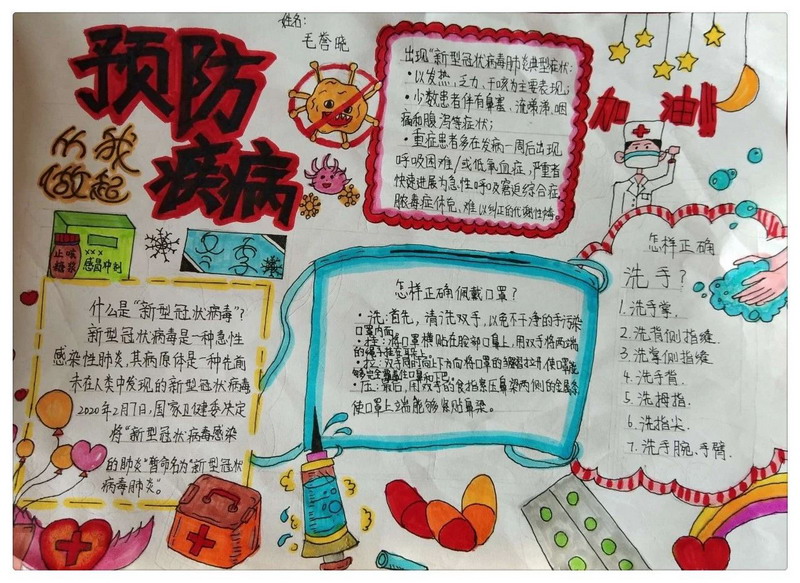 姓名:
毛誉晓
预防
疾病
从我
做起
加油!
出现“新型冠状病毒肺炎典型症状:
·以发热,乏力、干咳为主要表现;
·少数患者伴有鼻塞、流鼻涕、咽
痛和腹泻等症状;
·重症患者多在发病一周后出现
呼吸困难/或低氧血症,严重者
快速进展为急性呼吸窘迫综合征
脓毒症休克、难以纠正的代谢性
止咳
糖浆
×××
感冒冲剂
什么是“新型冠状病毒”?
新型冠状病毒是一种急性
感染性肺炎,其病原体是一种先前
未在人类中发现的新型冠状病毒
2020年2月7日,国家卫健委决定
将“新型冠状病毒感染
的肺炎”暂命名为“新型冠状
病毒肺炎”。
怎样正确佩戴口罩?
·洗:首先,清洗双手,以免不干净的手污染
口罩内面。
·挂:将口罩横贴在脸部口鼻上,用双手将两端
的绳子挂在耳朵上。
·拉:双手同时向上下方向将口罩的皱褶拉开,使口罩能
够完全覆盖住口鼻和下巴。
·压:最后,用双手的食指紧压鼻梁两侧的金属条,
使口罩上端能够紧贴鼻梁。
怎样正确
洗手?
1.洗手掌.
2.洗背侧指缝.
3.洗掌侧指缝
4.洗手背.
5.洗拇指.
6.洗指尖.
7.洗手腕、手臂.